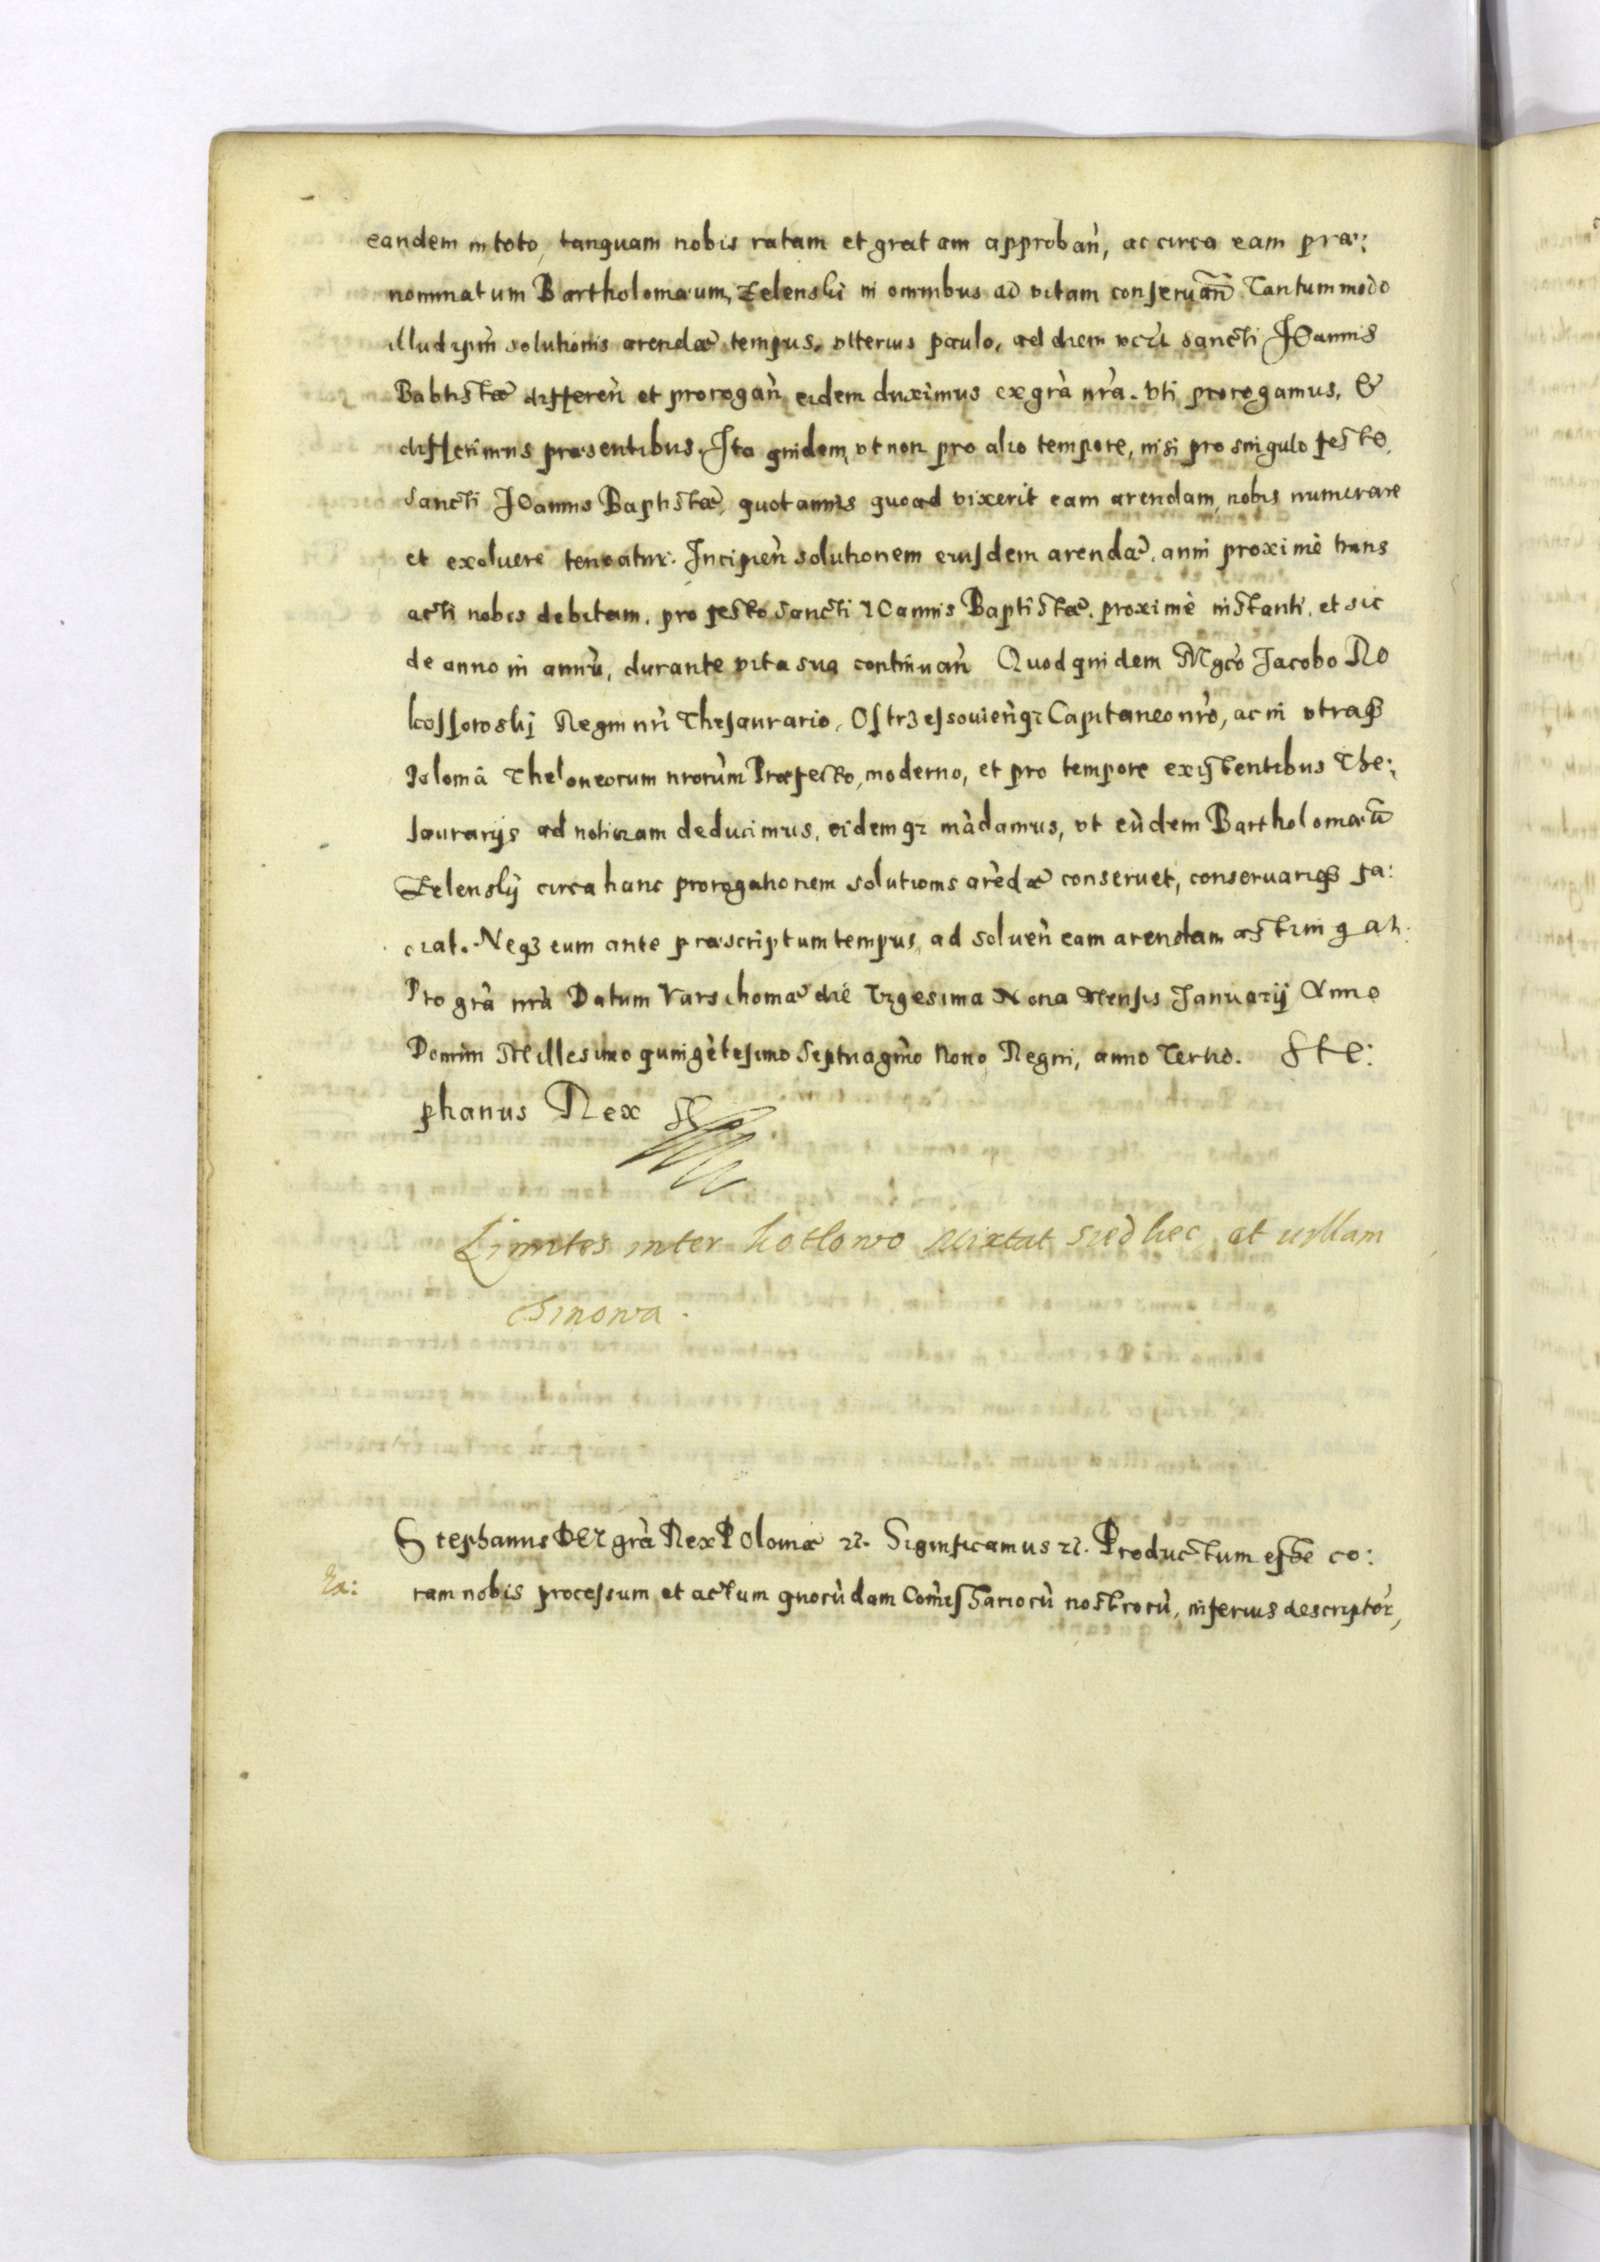 eandem in toto, tanquam nobis ratam et gratam approban̄, ac circa eam præ:
nominatum Bartholomæum Zelenski in omnibus ad vitam conseruan̄ Tantummodo
illud ipm̄ solutionis arendæ tempus, vlterius paulo, ad diem vczt sancti JOannis
Babtistæ differen̄ et prorogan̄ eidem duximus ex grā nrā. vti prorogamus, &
differimus præsentibus. Ita quidem, vt non pro alio tempore, nisi pro singulo festo,
sancti JOannis Baptistæ, quotannis quoad vixerit eam arendam, nobis numerare
et exoluere teneatur. Incipien̄ solutionem eiusdem arendæ, anni proximè trans
acti nobis debitam, pro festo sancti IOannis Baptistæ, proximè instanti, et sic
de anno in annū, durante vita sua continuan̄ Quod quidem Mgco Jacobo Ro
kossowskj Regni nrī Thesaurario, Ostrzessouien̄qz Capitaneo nrō, ac in vtraqz
Polonia Theloneorum nrorūm Præfecto, moderno, et pro tempore existentibus The:
saurarijs ad noticiam deducimus, eidemqz mādamus, vt eūdem Bartholomæū
Zelenskj circa hanc prorogationem solutionis arēdæ conseruet, conseruariqz fa:
ciat. Neqz eum ante præscriptum tempus, ad soluen̄ eam arendam astringat.
Pro grā nrā Datum Varschouiæ die Vigesima Nona Mensis Januarij Anno
Domini Millesimo quingētesimo Septuagmo Nono, Regni, anno Tertio. Ste:
phanus Rex
Limites inter kotlowo Mixtat Siedlec et uyllam
Osinowa.
Stephanus DEI grā Rex POloniæ zc. Significamus zc. Productum esse co:
Ra: ram nobis processum et actum quorūdam Comissariorū nostrorū, inferius descriptor,